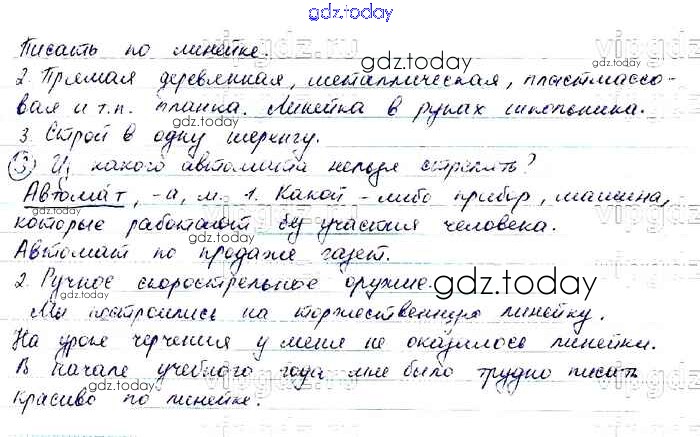 gdz.today
Писать по линейке.
gdz.today
2. Прямая деревянная, металлическая, пластмассо-
вая и т.п. планка. Линейка в руках школьника.
3. Строй в одну шеренгу.
3) Из какого автомата нельзя стрелять?
Автомат, -а, м. 1. Какой-либо прибор, машина,
которые работают без участия человека.
gdz.today
Автомат по продаже газет.
2. Ручное скорострельное оружие.
gdz.today
Мы построились на торжественную линейку.
На уроке черчения у меня не оказалось линейки.
В начале учебного года мне было трудно писать
красиво по линейке.
gdz.today
vipgdz.ru